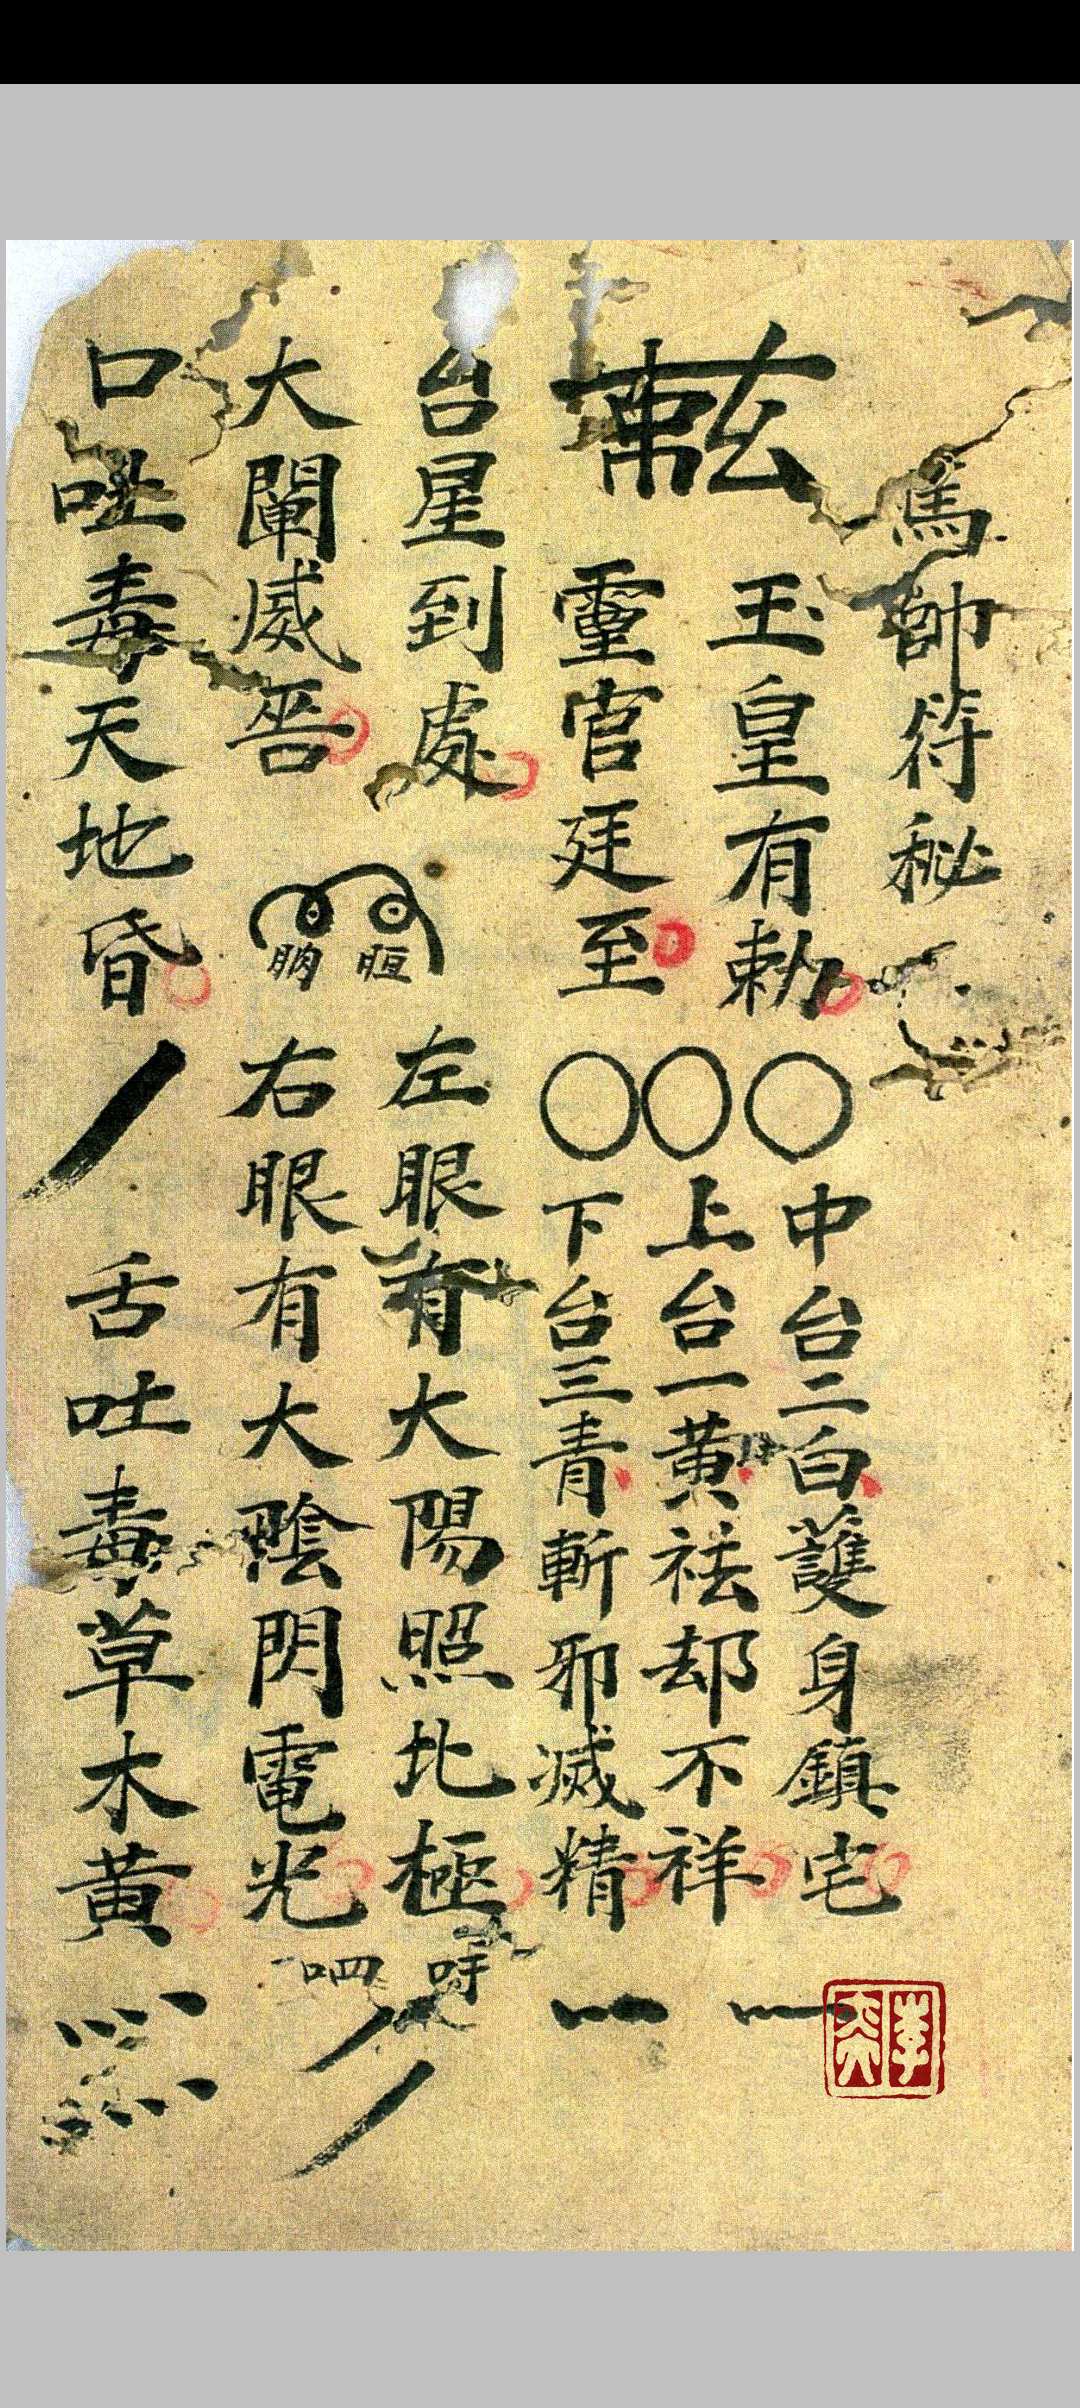 馬帥符秘
玉皇有勅
靈官廷至
中台二白護身鎮宅
上台一黃祛却不祥
下台三青斬邪滅精
台星到處
大闡威吾
左眼有大陽照北極
右眼有大陰閃電光
吽
呬
口吐毒天地昏
舌吐毒草木黃